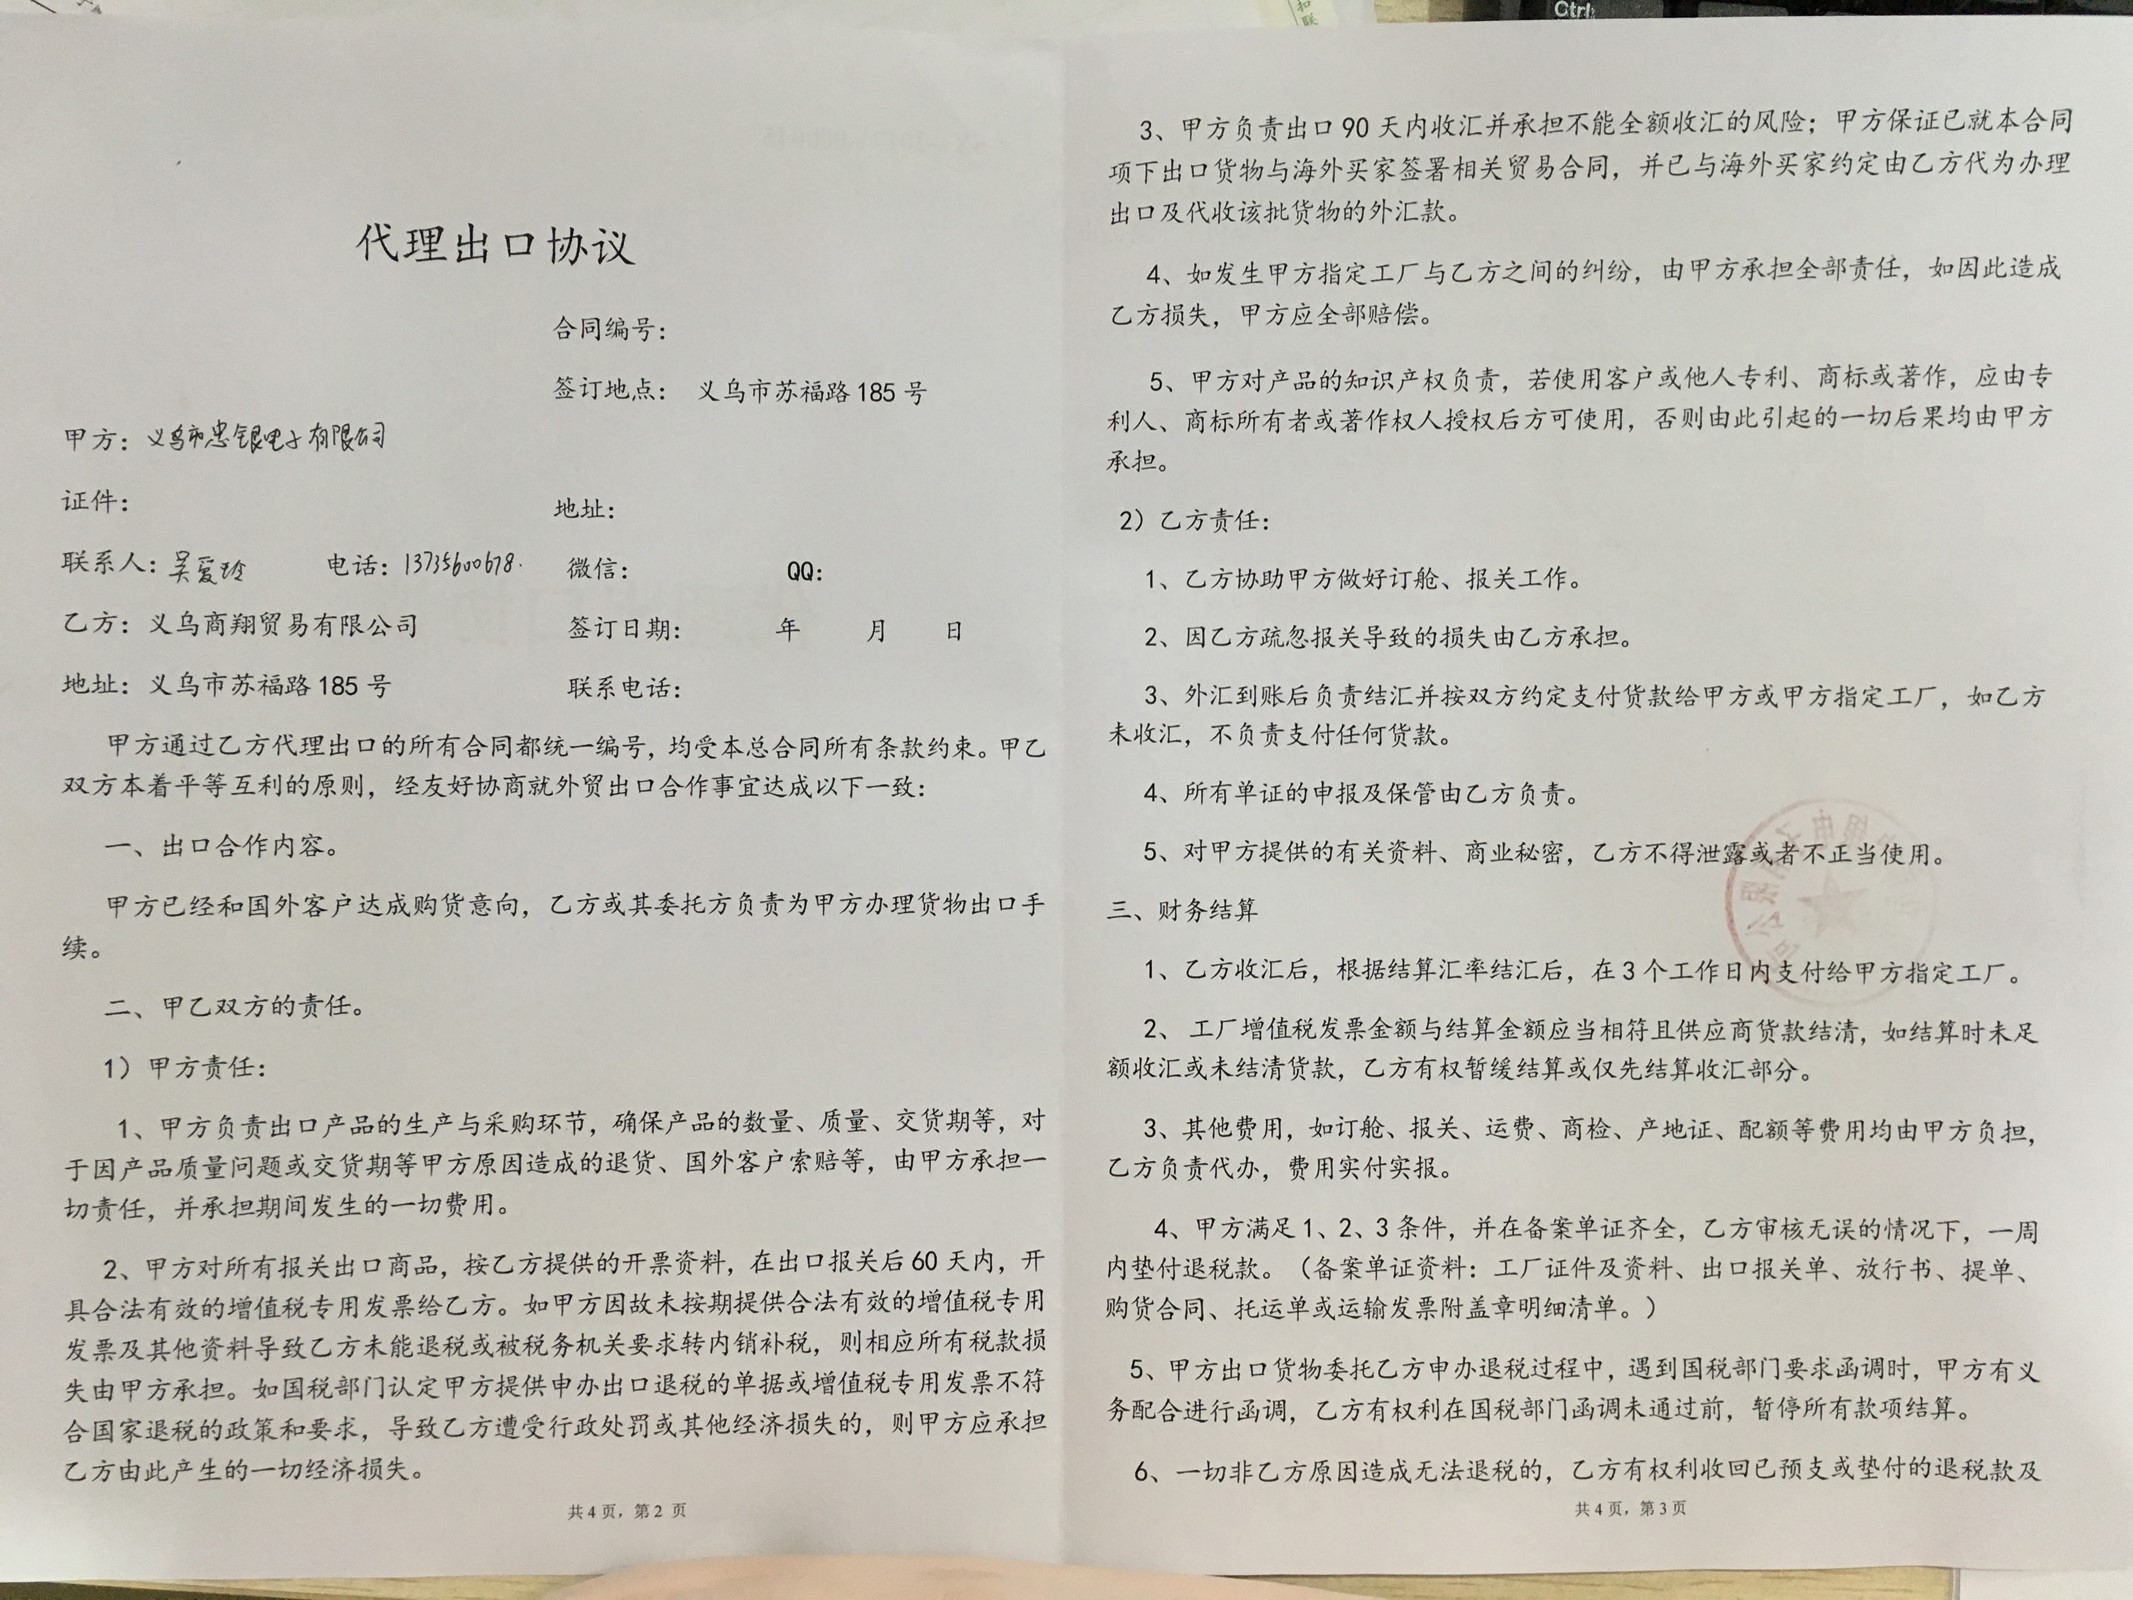 代理出口协议
合同编号：
签订地点： 义乌市苏福路185号
甲方：义乌市忠银电子有限公司
证件： 地址：
联系人：吴爱玲 电话：13735600678. 微信： QQ：
乙方：义乌商翔贸易有限公司 签订日期： 年 月 日
地址：义乌市苏福路185号 联系电话：
甲方通过乙方代理出口的所有合同都统一编号，均受本总合同所有条款约束。甲乙
双方本着平等互利的原则，经友好协商就外贸出口合作事宜达成以下一致：
一、出口合作内容。
甲方已经和国外客户达成购货意向，乙方或其委托方负责为甲方办理货物出口手
续。
二、甲乙双方的责任。
1）甲方责任：
1、甲方负责出口产品的生产与采购环节，确保产品的数量、质量、交货期等，对
于因产品质量问题或交货期等甲方原因造成的退货、国外客户索赔等，由甲方承担一
切责任，并承担期间发生的一切费用。
2、甲方对所有报关出口商品，按乙方提供的开票资料，在出口报关后60天内，开
具合法有效的增值税专用发票给乙方。如甲方因故未按期提供合法有效的增值税专用
发票及其他资料导致乙方未能退税或被税务机关要求转内销补税，则相应所有税款损
失由甲方承担。如国税部门认定甲方提供申办出口退税的单据或增值税专用发票不符
合国家退税的政策和要求，导致乙方遭受行政处罚或其他经济损失的，则甲方应承担
乙方由此产生的一切经济损失。
共4页，第2 页
3、甲方负责出口90天内收汇并承担不能全额收汇的风险；甲方保证已就本合同
项下出口货物与海外买家签署相关贸易合同，并已与海外买家约定由乙方代为办理
出口及代收该批货物的外汇款。
4、如发生甲方指定工厂与乙方之间的纠纷，由甲方承担全部责任，如因此造成
乙方损失，甲方应全部赔偿。
5、甲方对产品的知识产权负责，若使用客户或他人专利、商标或著作，应由专
利人、商标所有者或著作权人授权后方可使用，否则由此引起的一切后果均由甲方
承担。
2）乙方责任：
1、乙方协助甲方做好订舱、报关工作。
2、因乙方疏忽报关导致的损失由乙方承担。
3、外汇到账后负责结汇并按双方约定支付货款给甲方或甲方指定工厂，如乙方
未收汇，不负责支付任何货款。
4、所有单证的申报及保管由乙方负责。
5、对甲方提供的有关资料、商业秘密，乙方不得泄露或者不正当使用。
三、财务结算
1、乙方收汇后，根据结算汇率结汇后，在3个工作日内支付给甲方指定工厂。
2、 工厂增值税发票金额与结算金额应当相符且供应商货款结清，如结算时未足
额收汇或未结清货款，乙方有权暂缓结算或仅先结算收汇部分。
3、其他费用，如订舱、报关、运费、商检、产地证、配额等费用均由甲方负担，
乙方负责代办，费用实付实报。
4、甲方满足1、2、3条件，并在备案单证齐全，乙方审核无误的情况下，一周
内垫付退税款。（备案单证资料：工厂证件及资料、出口报关单、放行书、提单、
购货合同、托运单或运输发票附盖章明细清单。）
5、甲方出口货物委托乙方申办退税过程中，遇到国税部门要求函调时，甲方有义
务配合进行函调，乙方有权利在国税部门函调未通过前，暂停所有款项结算。
6、一切非乙方原因造成无法退税的，乙方有权利收回已预支或垫付的退税款及
共4页，第3页
Ctrl
扣联